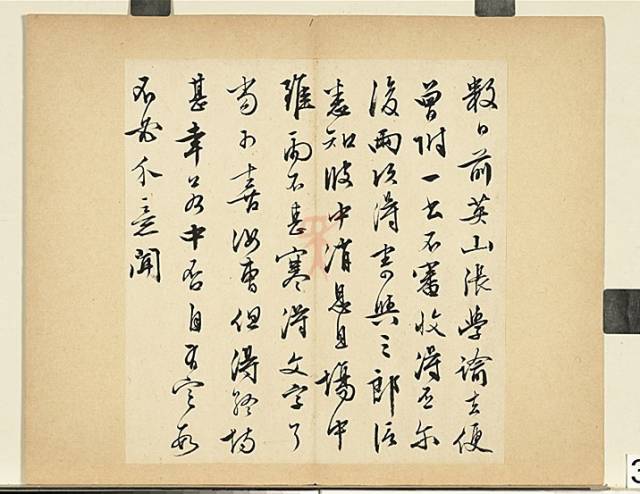 數日前英山張學諭去便
曾附一書不審收得否尔
後兩次得書與三郎活
悉知彼中消息且場中
雖雨不甚寒得文字了
當可喜汝曹但得終場
甚幸若中否自有定數
不必介意聞